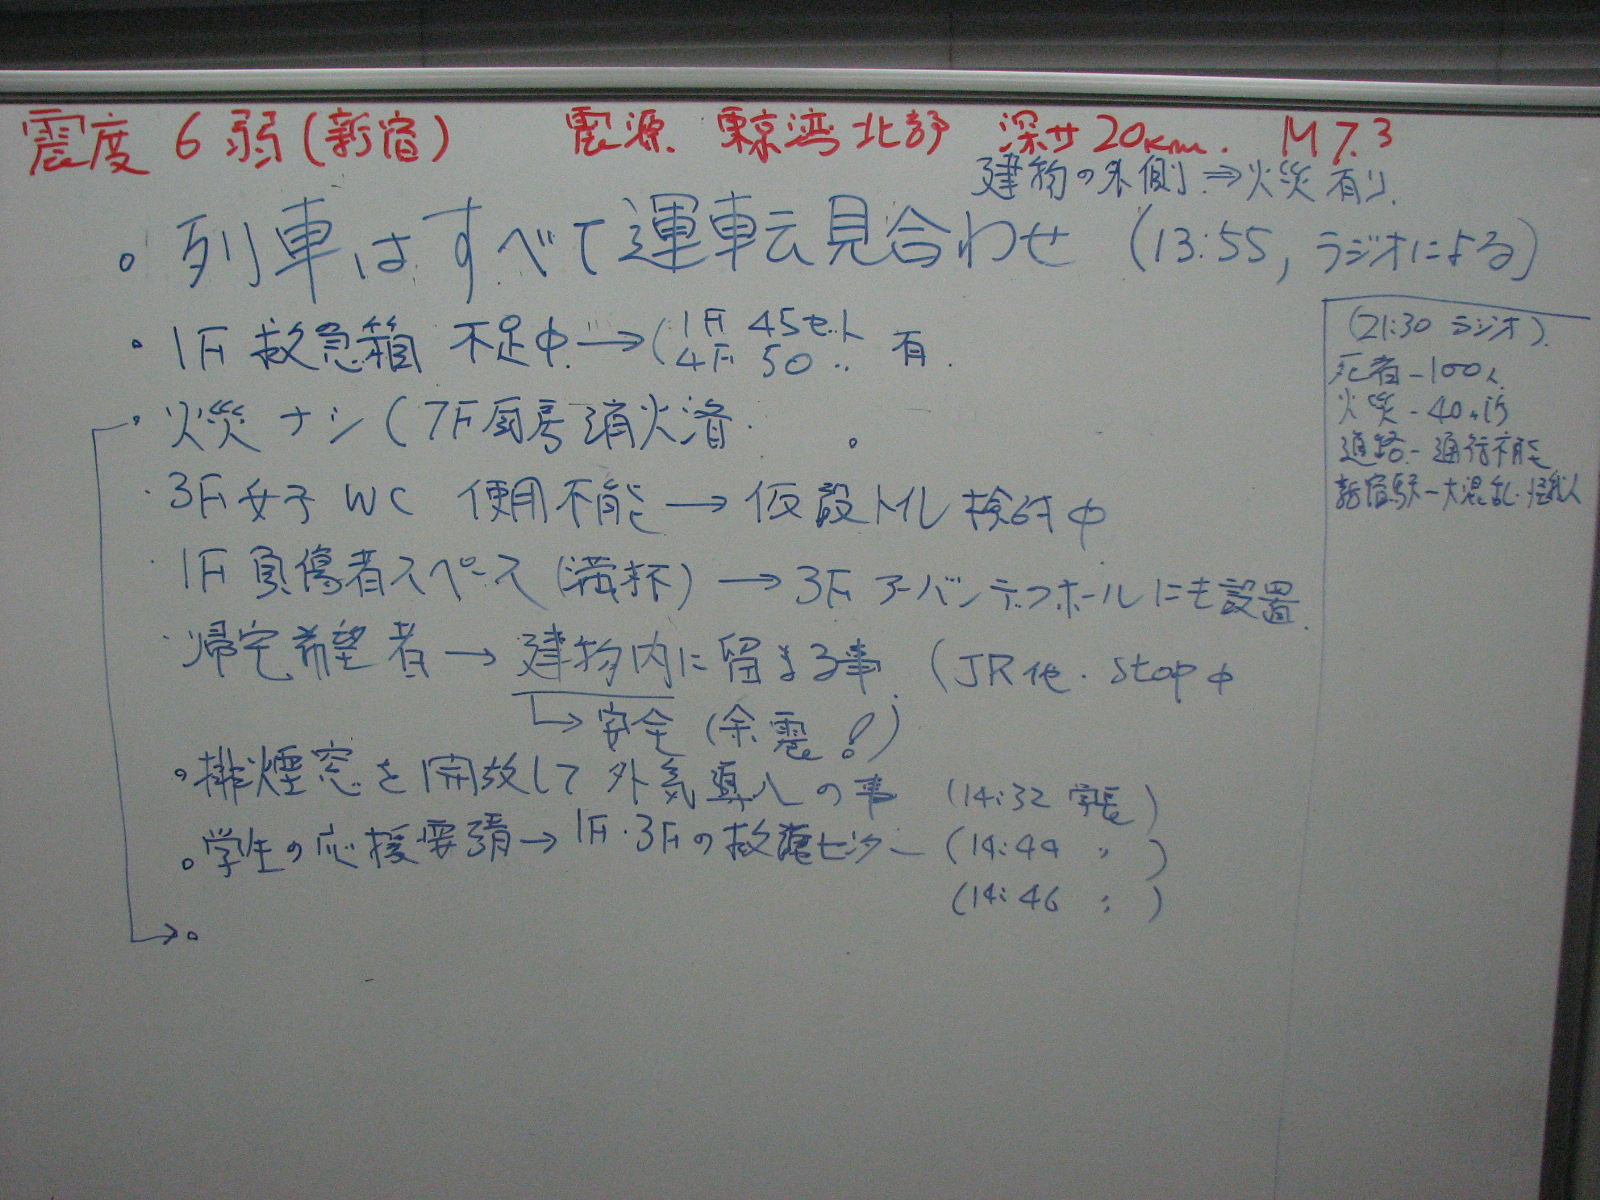 震度 6弱(新宿) 震源 東京湾北部 深サ20km. M7.3
建物の外側⇒火災有り.
。列車はすべて運転見合わせ (13:55, ラジオによる)
・1F 救急箱 不足中→(1F 45セット
4F 50 〃 有.
・火災ナシ(7F厨房消火済.
・3F女子WC 使用不能→仮設トイレ検討中
・1F負傷者スペース(満杯)→3Fアーバンテックホールにも設置.
・帰宅希望者→建物内に留まる事. (JR他. stop中
↳安全(余震!)
。排煙窓を開放して外気導入の事 (14:32 室長)
。学生の応援要請→1F・3Fの救護センター (14:44 〃 )
(14:46 〃 )
(21:30 ラジオ).
死者-100人
火災-40ヶ所
道路-通行不能
新宿駅-大混乱・怪我人